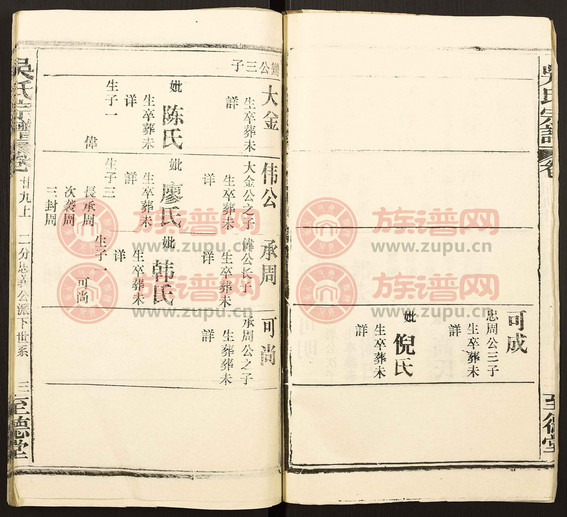 可成
忠周公三子
生卒葬未
詳
妣 倪氏
生卒葬未
詳
至德堂
公三子
大金
生卒葬未
詳
妣 陈氏
生卒葬未
詳
生子一
偉
伟公
大金公之子
生卒葬未
詳
妣 廖氏
生卒葬未
詳
生子三
長承周
次袭周
三封周
承周
偉公长子
生卒葬未
詳
妣 韩氏
生卒葬未
詳
生子一
可尚
可尚
承周公之子
生卒葬未
詳
吳氏宗譜
卷
廿九上
二分忠義公派下世系
三
至德堂
族谱网
www.zupu.cn
族谱网
www.zupu.cn
族谱网
www.zupu.cn
族谱网
www.zupu.cn